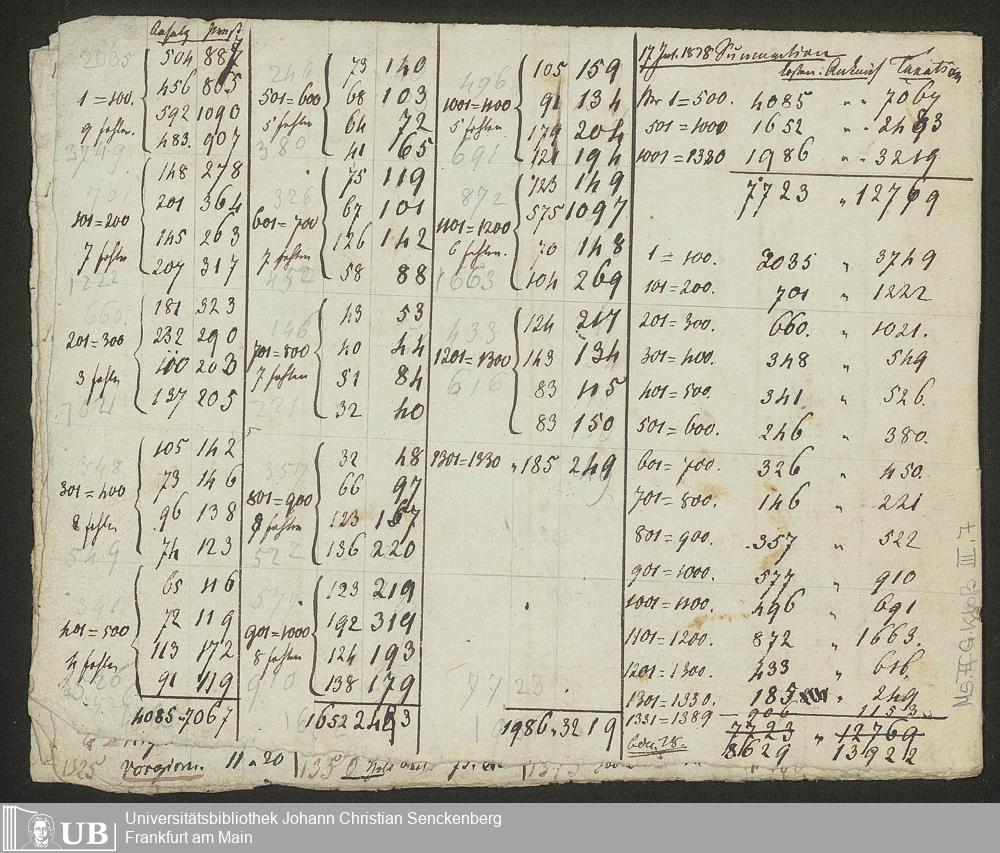 504 887
2035
456 805
1=100.
592 1090
9 fehlen.
483. 907
3749
148 278
701
201 364
101=200
145 263
7 fehlen
207 317
1222
181 323
660.
232 290
201=300
100 203
3 fehlen
137 205
105 142
348
73 146
301=400
96 138
8 fehlen
74 123
549
65 116
72 119
401=500
113 172
4 fehlen
91 119
4085 " 7067
73 140
246
68 103
501=600
64 72
5 fehlen
41 65
380
75 119
326
67 101
601=700
126 142
7 fehlen
58 88
452
43 53
146
40 44
701=800
31 84
7 fehlen
32 40
221
32 48
357
66 97
801=900
123 157
8 fehlen
136 220
522
123 219
577
192 319
901=1000
124 193
8 fehlen
138 179
910
1652 2483
105 159
496
91 134
1001=1100
179 204
5 fehlen.
121 194
691
123 149
872
575 1097
1101=1200
70 148
6 fehlen.
104 269
1663
124 217
433
143 134
1201=1300
83 115
616
83 150
1301=1330 " 185 249
7723
1986 " 3219
1878 Summation
Taxation
1=500. 4085 " " 7067
501=1000 1652 " " 2483
1001=1330 1986 " " 3219
7723 " 12769
1=100. 2035 " 3749
101=200. 701 " 1222
201=300. 660. " 1021.
301=400. 348 " 549
401=500. 341 " 526.
501=600. 246 " 380.
601=700. 326 " 450.
701=800. 146 " 221
801=900. 357 " 522
901=1000. 577 " 910
1001=1100. 496 " 691
1101=1200. 872 " 1663.
1201=1300. 433 " 616.
1301=1330. 185 " 249
1331=1389 906 1153.
7723 " 12769
8629 13922
1325 11 " 20 135
Ms. Ff. G. Kloß III. 7
UB
Universitätsbibliothek Johann Christian Senckenberg
Frankfurt am Main